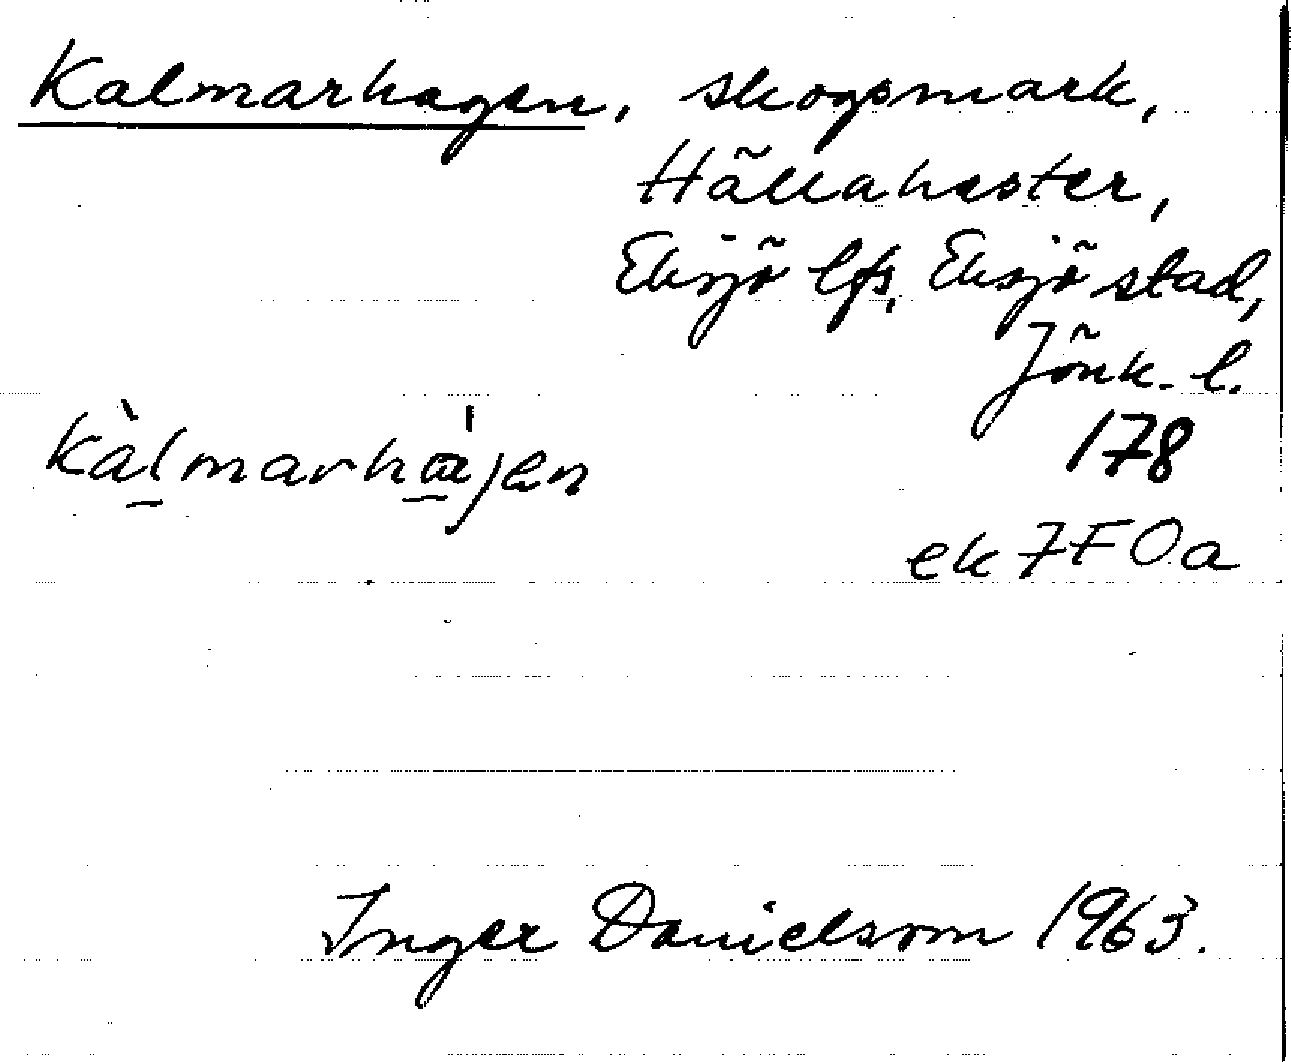 Kalmarhagen, skogsmark,
Hällahester,
Eksjö lfs, Eksjö stad,
Jönk. l.
kàlmarhäjen
178
ek 7F0a
Inger Danielsson 1963.